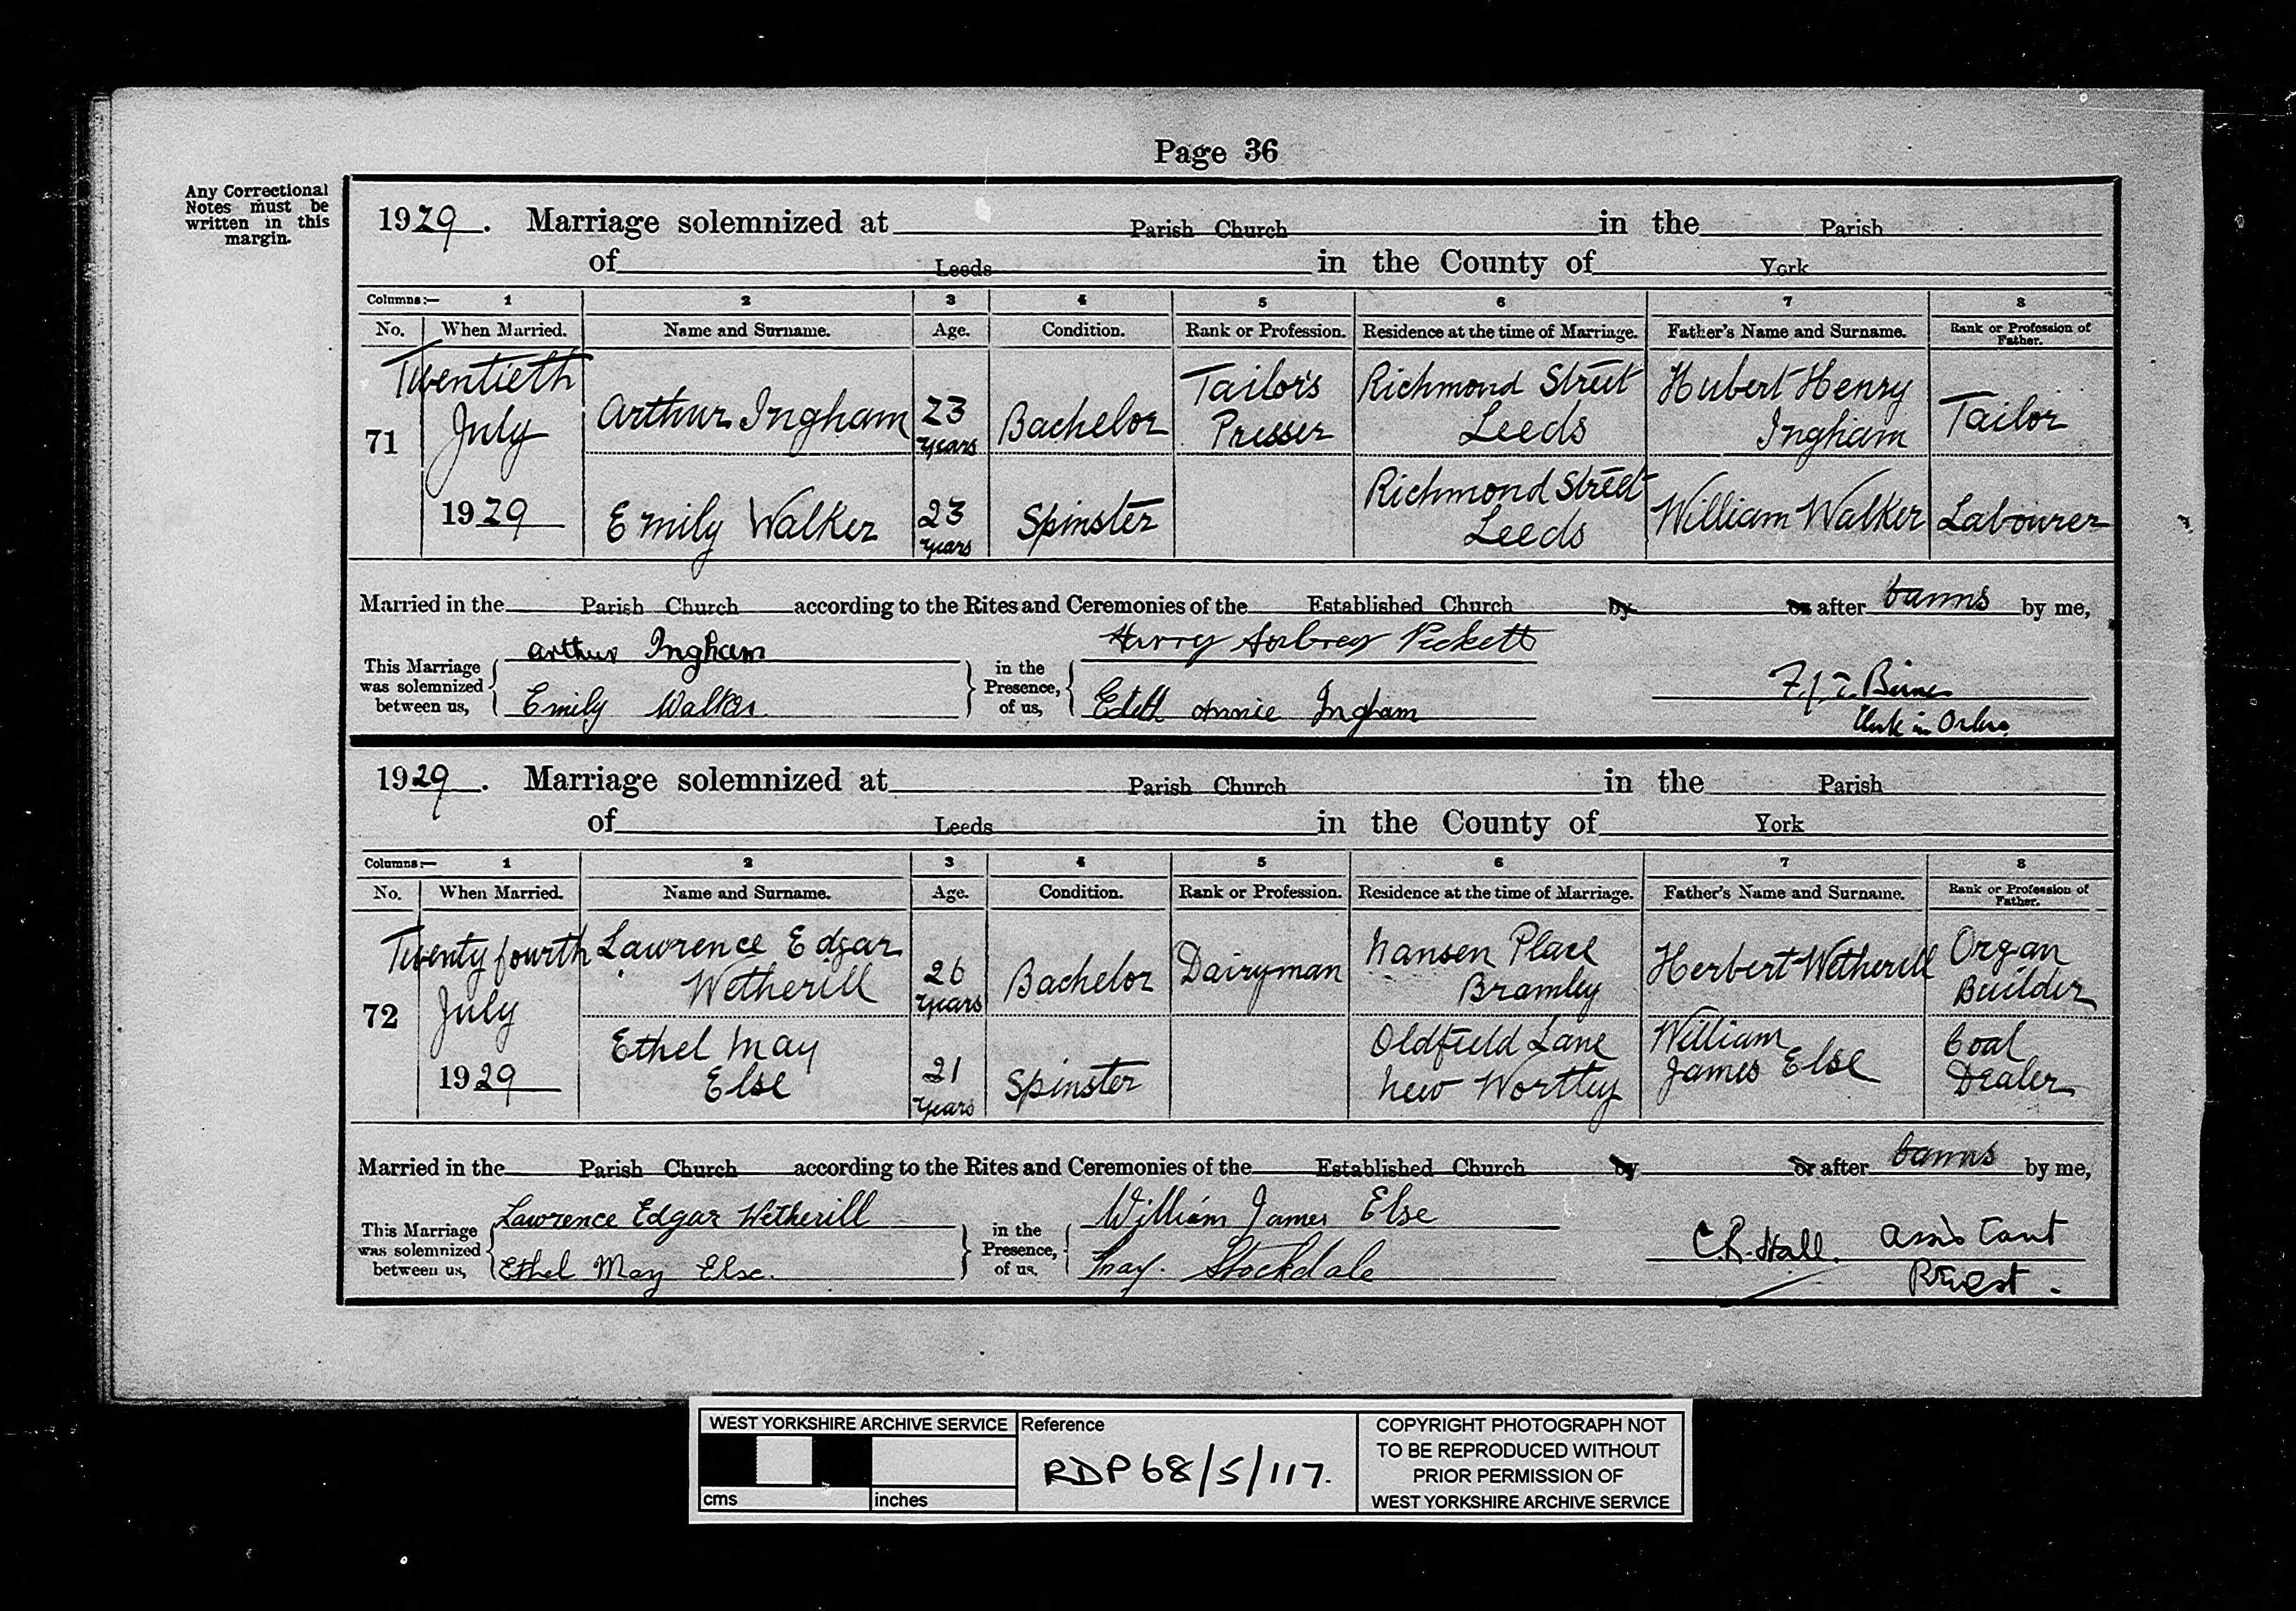 Page 36
Any Correctional
Notes must be
written in this
margin.
1929. Marriage solemnized at Parish Church in the Parish
of Leeds in the County of York
Columns:— 1 2 3 4 5 6 7 8
No. When Married. Name and Surname. Age. Condition. Rank or Profession. Residence at the time of Marriage. Father's Name and Surname. Rank or Profession of Father.
71 Twentieth July 1929 Arthur Ingham 23 years Bachelor Tailor's Presser Richmond Street Leeds Hubert Henry Ingham Tailor
Emily Walker 23 years Spinster Richmond Street Leeds William Walker Labourer
Married in the Parish Church according to the Rites and Ceremonies of the Established Church by or after banns by me,
This Marriage was solemnized between us, Arthur Ingham in the Presence, of us, Harry Aubrey Pickett
Emily Walker Edith Annie Ingham
Clerk in Orders
1929. Marriage solemnized at Parish Church in the Parish
of Leeds in the County of York
Columns:— 1 2 3 4 5 6 7 8
No. When Married. Name and Surname. Age. Condition. Rank or Profession. Residence at the time of Marriage. Father's Name and Surname. Rank or Profession of Father.
72 Twenty fourth July 1929 Lawrence Edgar Wetherill 26 years Bachelor Dairyman Nansen Place Bramley Herbert Wetherill Organ Builder
Ethel May Else 21 years Spinster Oldfield Lane New Wortley William James Else Coal Dealer
Married in the Parish Church according to the Rites and Ceremonies of the Established Church by or after banns by me,
This Marriage was solemnized between us, Lawrence Edgar Wetherill in the Presence, of us, William James Else
Ethel May Else. May. Stockdale
C.R. Hall. Assistant
Priest.
WEST YORKSHIRE ARCHIVE SERVICE
cms inches
Reference
RDP68/5/117.
COPYRIGHT PHOTOGRAPH NOT
TO BE REPRODUCED WITHOUT
PRIOR PERMISSION OF
WEST YORKSHIRE ARCHIVE SERVICE